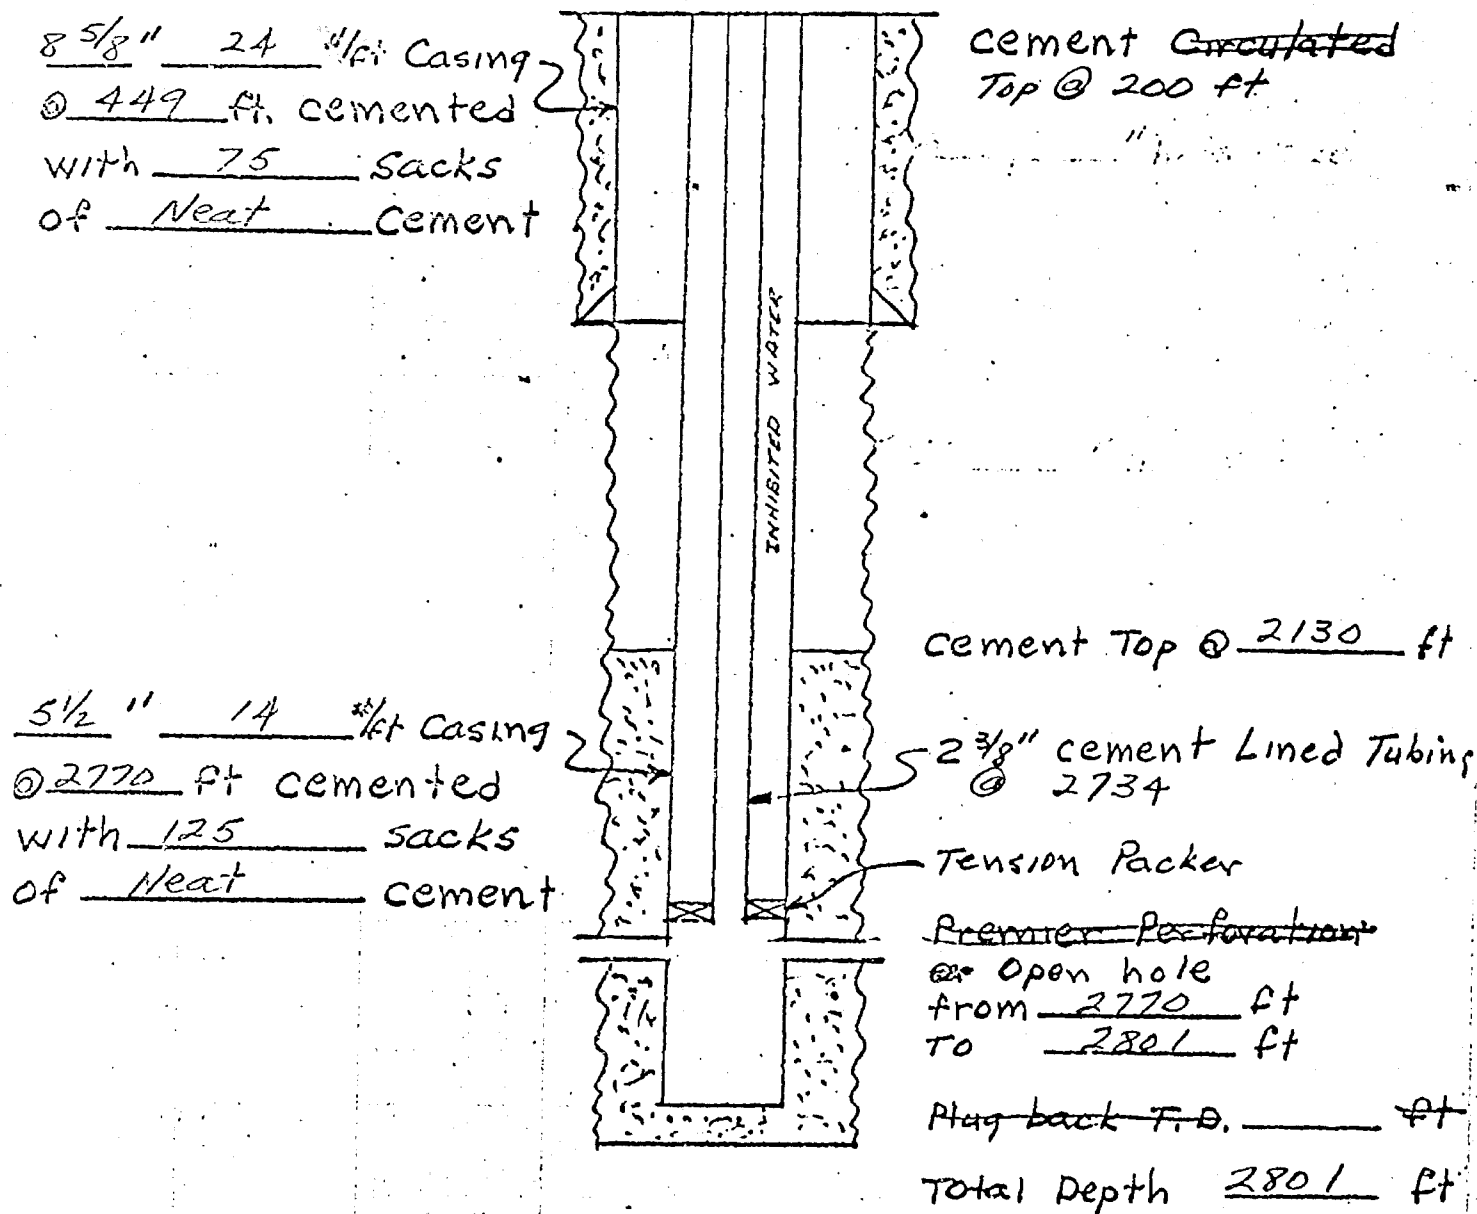 8 5/8" 24 #/ft Casing
@ 449 ft. cemented
with 75 sacks
of Neat Cement
cement Circulated
Top @ 200 ft
INHIBITED WATER
Cement Top @ 2130 ft
5 1/2 " 14 #/ft Casing
@ 2770 ft cemented
with 125 sacks
of Neat cement
2 3/8" cement Lined Tubing
@ 2734
Tension Packer
Premier Perforation
or Open hole
from 2770 ft
To 2801 ft
Plug back T.D. ______ ft
Total Depth 2801 ft